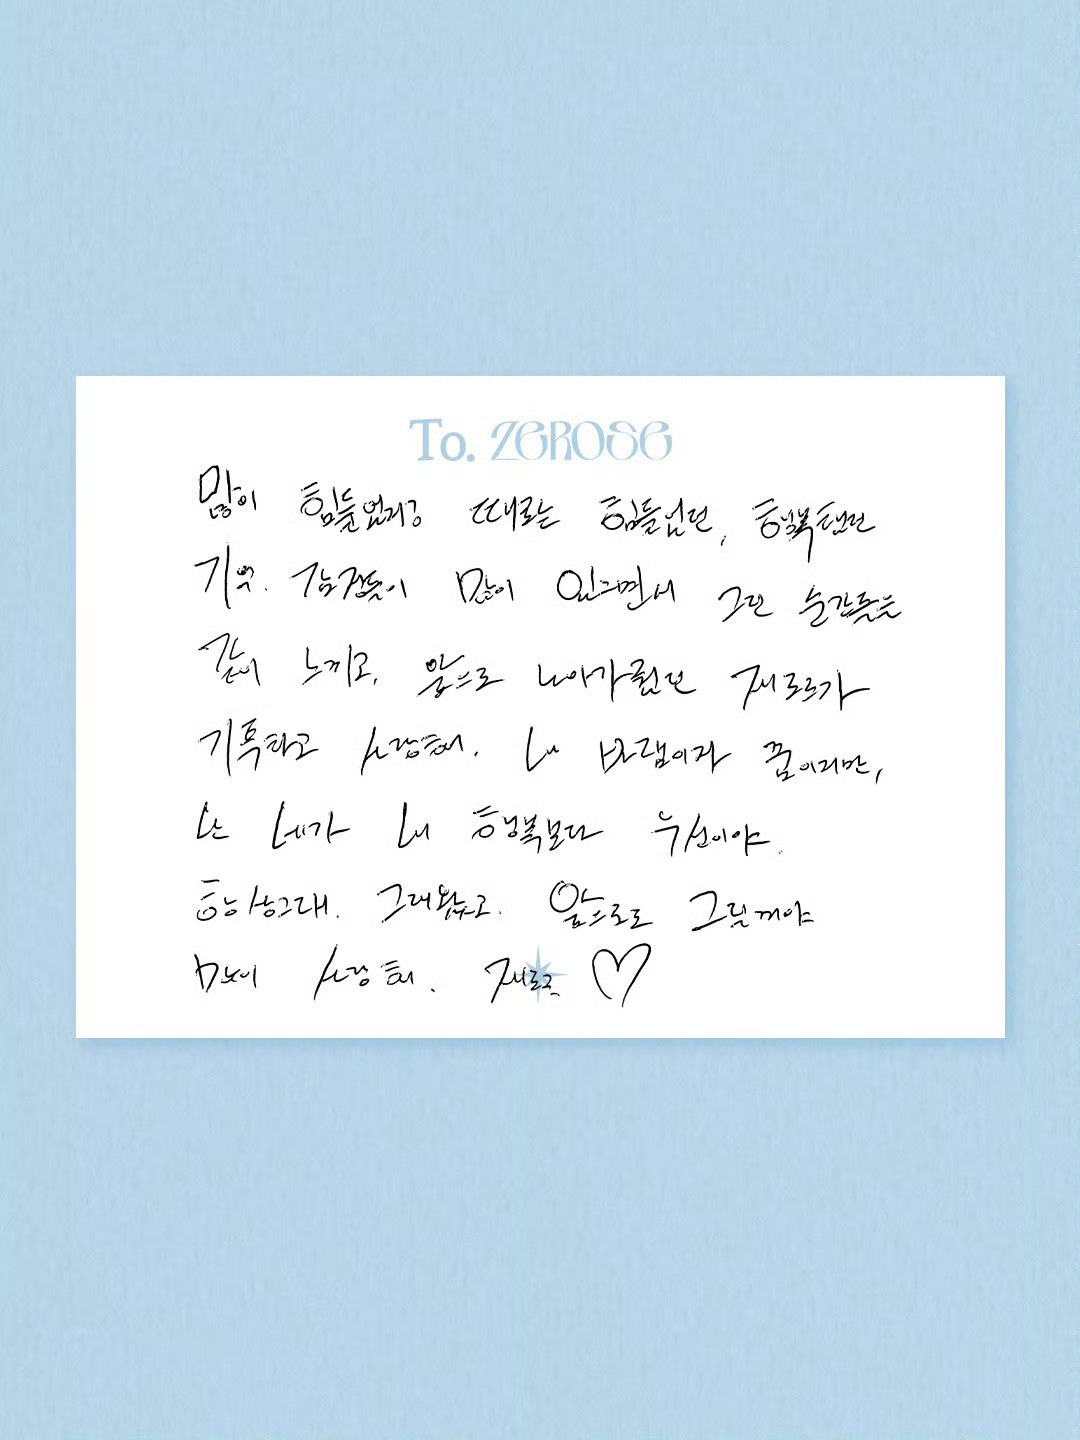 To. ZEROSE
많이 힘들었지? 때로는 힘들었던, 행복했던
기억. 감정들이 많이 있으면서 그런 순간들을
같이 느끼고, 앞으로 나아가줬던 제로즈가
기특하고 사랑해. 내 바램이자 꿈이지만,
난 네가 내 행복보다 우선이야.
항상그래. 그래왔고. 앞으로도 그럴꺼야
많이 사랑해. 제로즈 ♡